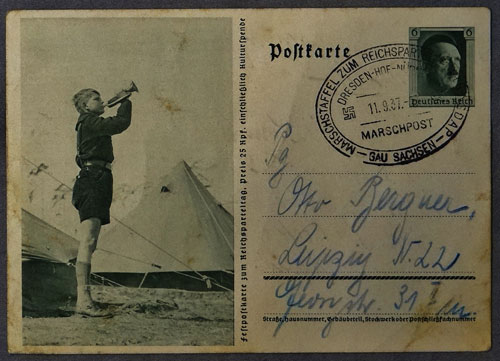 Postkarte
6 6
Deutsches Reich
MARSCHSTAFFEL ZUM REICHSPAR
D.A.P.
DRESDEN-HOF-NÜ
11.9.37.-
MARSCHPOST
GAU SACHSEN
Festpostkarte zum Reichsparteitag, Preis 25 Rpf. einschließlich Kulturspende
Pg
Otto Bergner,
Leipzig N. 22
31
Straße, Hausnummer, Gebäudeteil, Stockwerk oder Postschließfachnummer